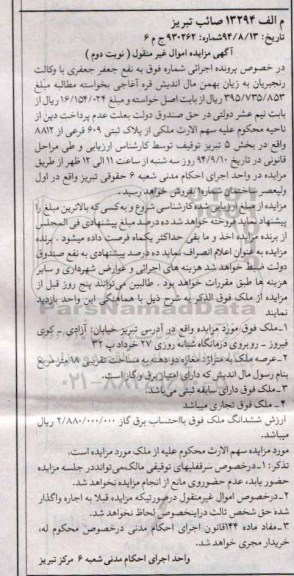 م الف ۱۳۲۹۴ صائب تبریز
تاریخ: ۹۴/۸/۱۳ شماره: ۹۳۰۲۶۲ ج م ۶
آگهی مزایده اموال غیر منقول ( نوبت دوم )
در خصوص پرونده اجرائی شماره فوق به نفع جعفر جعفری با وکالت
رنجبریان به زیان بهمن مال اندیش قره آغاجی بخواسته مطالبه مبلغ
۳۹۵/۷۳۵/۸۵۳ ریال از بابت اصل خواسته و مبلغ ۱۶/۱۵۴/۰۲۴ ریال از
بابت نیم عشر دولتی در حق صندوق دولت بعلت عدم پرداخت دین از
ناحیه محکوم علیه سهم الارث ملکی از پلاک ثبتی ۶۰۹ فرعی از ۸۸۱۲
واقع در بخش ۵ تبریز توقیف توسط کارشناس ارزیابی و طی مراحل
قانونی در تاریخ ۹۴/۹/۱۰ روز سه شنبه از ساعت ۱۱ الی ۱۲ ظهر از طریق
مزایده در واحد اجرای احکام مدنی شعبه ۶ حقوقی تبریز واقع در اول
ولیعصر ساختمان شماره۱ بفروش خواهد رسید.
مزایده از مبلغ ارزیابی شده کارشناسی شروع و به کسی که بالاترین مبلغ را
پیشنهاد نماید فروخته خواهد شد ده درصد مبلغ پیشنهادی فی المجلس
از برنده مزایده اخذ و ما بقی حداکثر یکماه فرصت داده میشود . برنده
مزایده به عنوان اعلام انصراف نماید ده درصد پیشنهادی به نفع صندوق
دولت ضبط خواهد شد هزینه های اجرائی و عوارض شهرداری و سایر
هزینه ها طبق مقررات خواهد بود . طالبین می‌توانند پنج روز قبل از
مزایده از ملک فوق الذکر به شرح ذیل با هماهنگی این واحد بازدید
نمایند
۱-ملک فوق مورد مزایده واقع در آدرس تبریز خیابان: آزادی _ کوی
فیروز _ روبروی درمانگاه شبانه روزی ۲۷ خرداد پ ۳۲
۲-عرصه ملک به متراژ: مغازه دو دهنه به مساحت تقریبی ۱۸ متر مربع
بنام رسول مال اندیش که دارای امتیاز برق و گاز است.
۳-ملک فوق دارای سابقه ثبتی می‌باشد.
۴-ملک فوق تجاری میباشد
ارزش ششدانگ ملک فوق بااحتساب برق گاز ۲/۸۸۰/۰۰۰/۰۰۰ ریال
میباشد.
مورد مزایده سهم الارث محکوم علیه از ملک مورد مزایده است.
تذکر: ۱-درخصوص سرقفلیهای توقیفی مالک‌می‌تواند در جلسه مزایده
حضور یابد، عدم حضور وی مانع از انجام مزایده نخواهد شد.
۲-درخصوص اموال غیرمنقول درصورتیکه مزایده قبلا به اجاره واگذار
شده حق شخص ثالث دراینخصوص لحاظ نخواهد شد.
۳-مفاد ماده ۱۴۴قانون اجرای احکام مدنی درخصوص محکوم له،
خریدار مجری خواهد شد.
واحد اجرای احکام مدنی شعبه ۶ مرکز تبریز
ParsNamadData